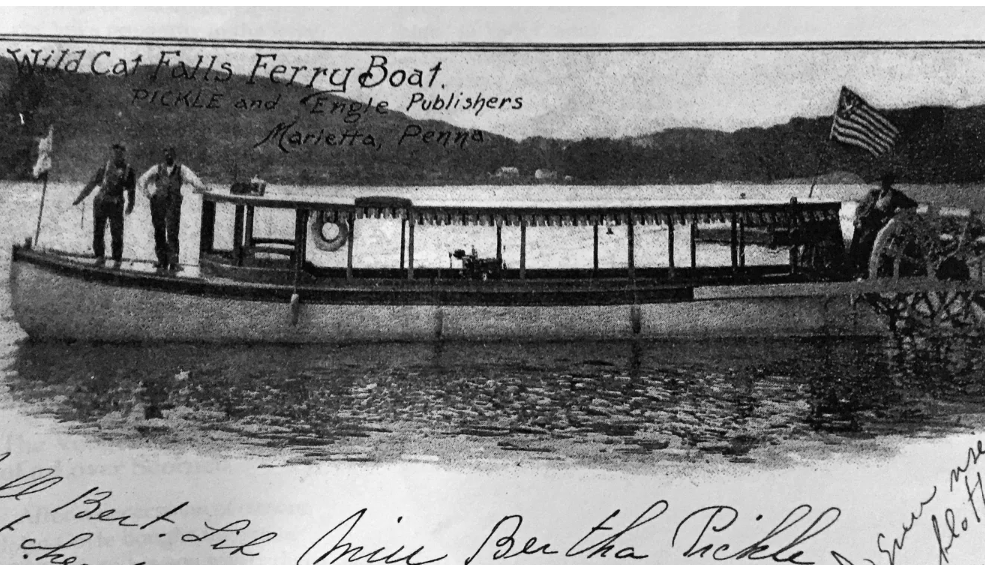 Wild Cat Falls Ferry Boat.
PICKLE and Engle Publishers
Marietta, Penna
Bert. Lih
Miss Bertha Pickle